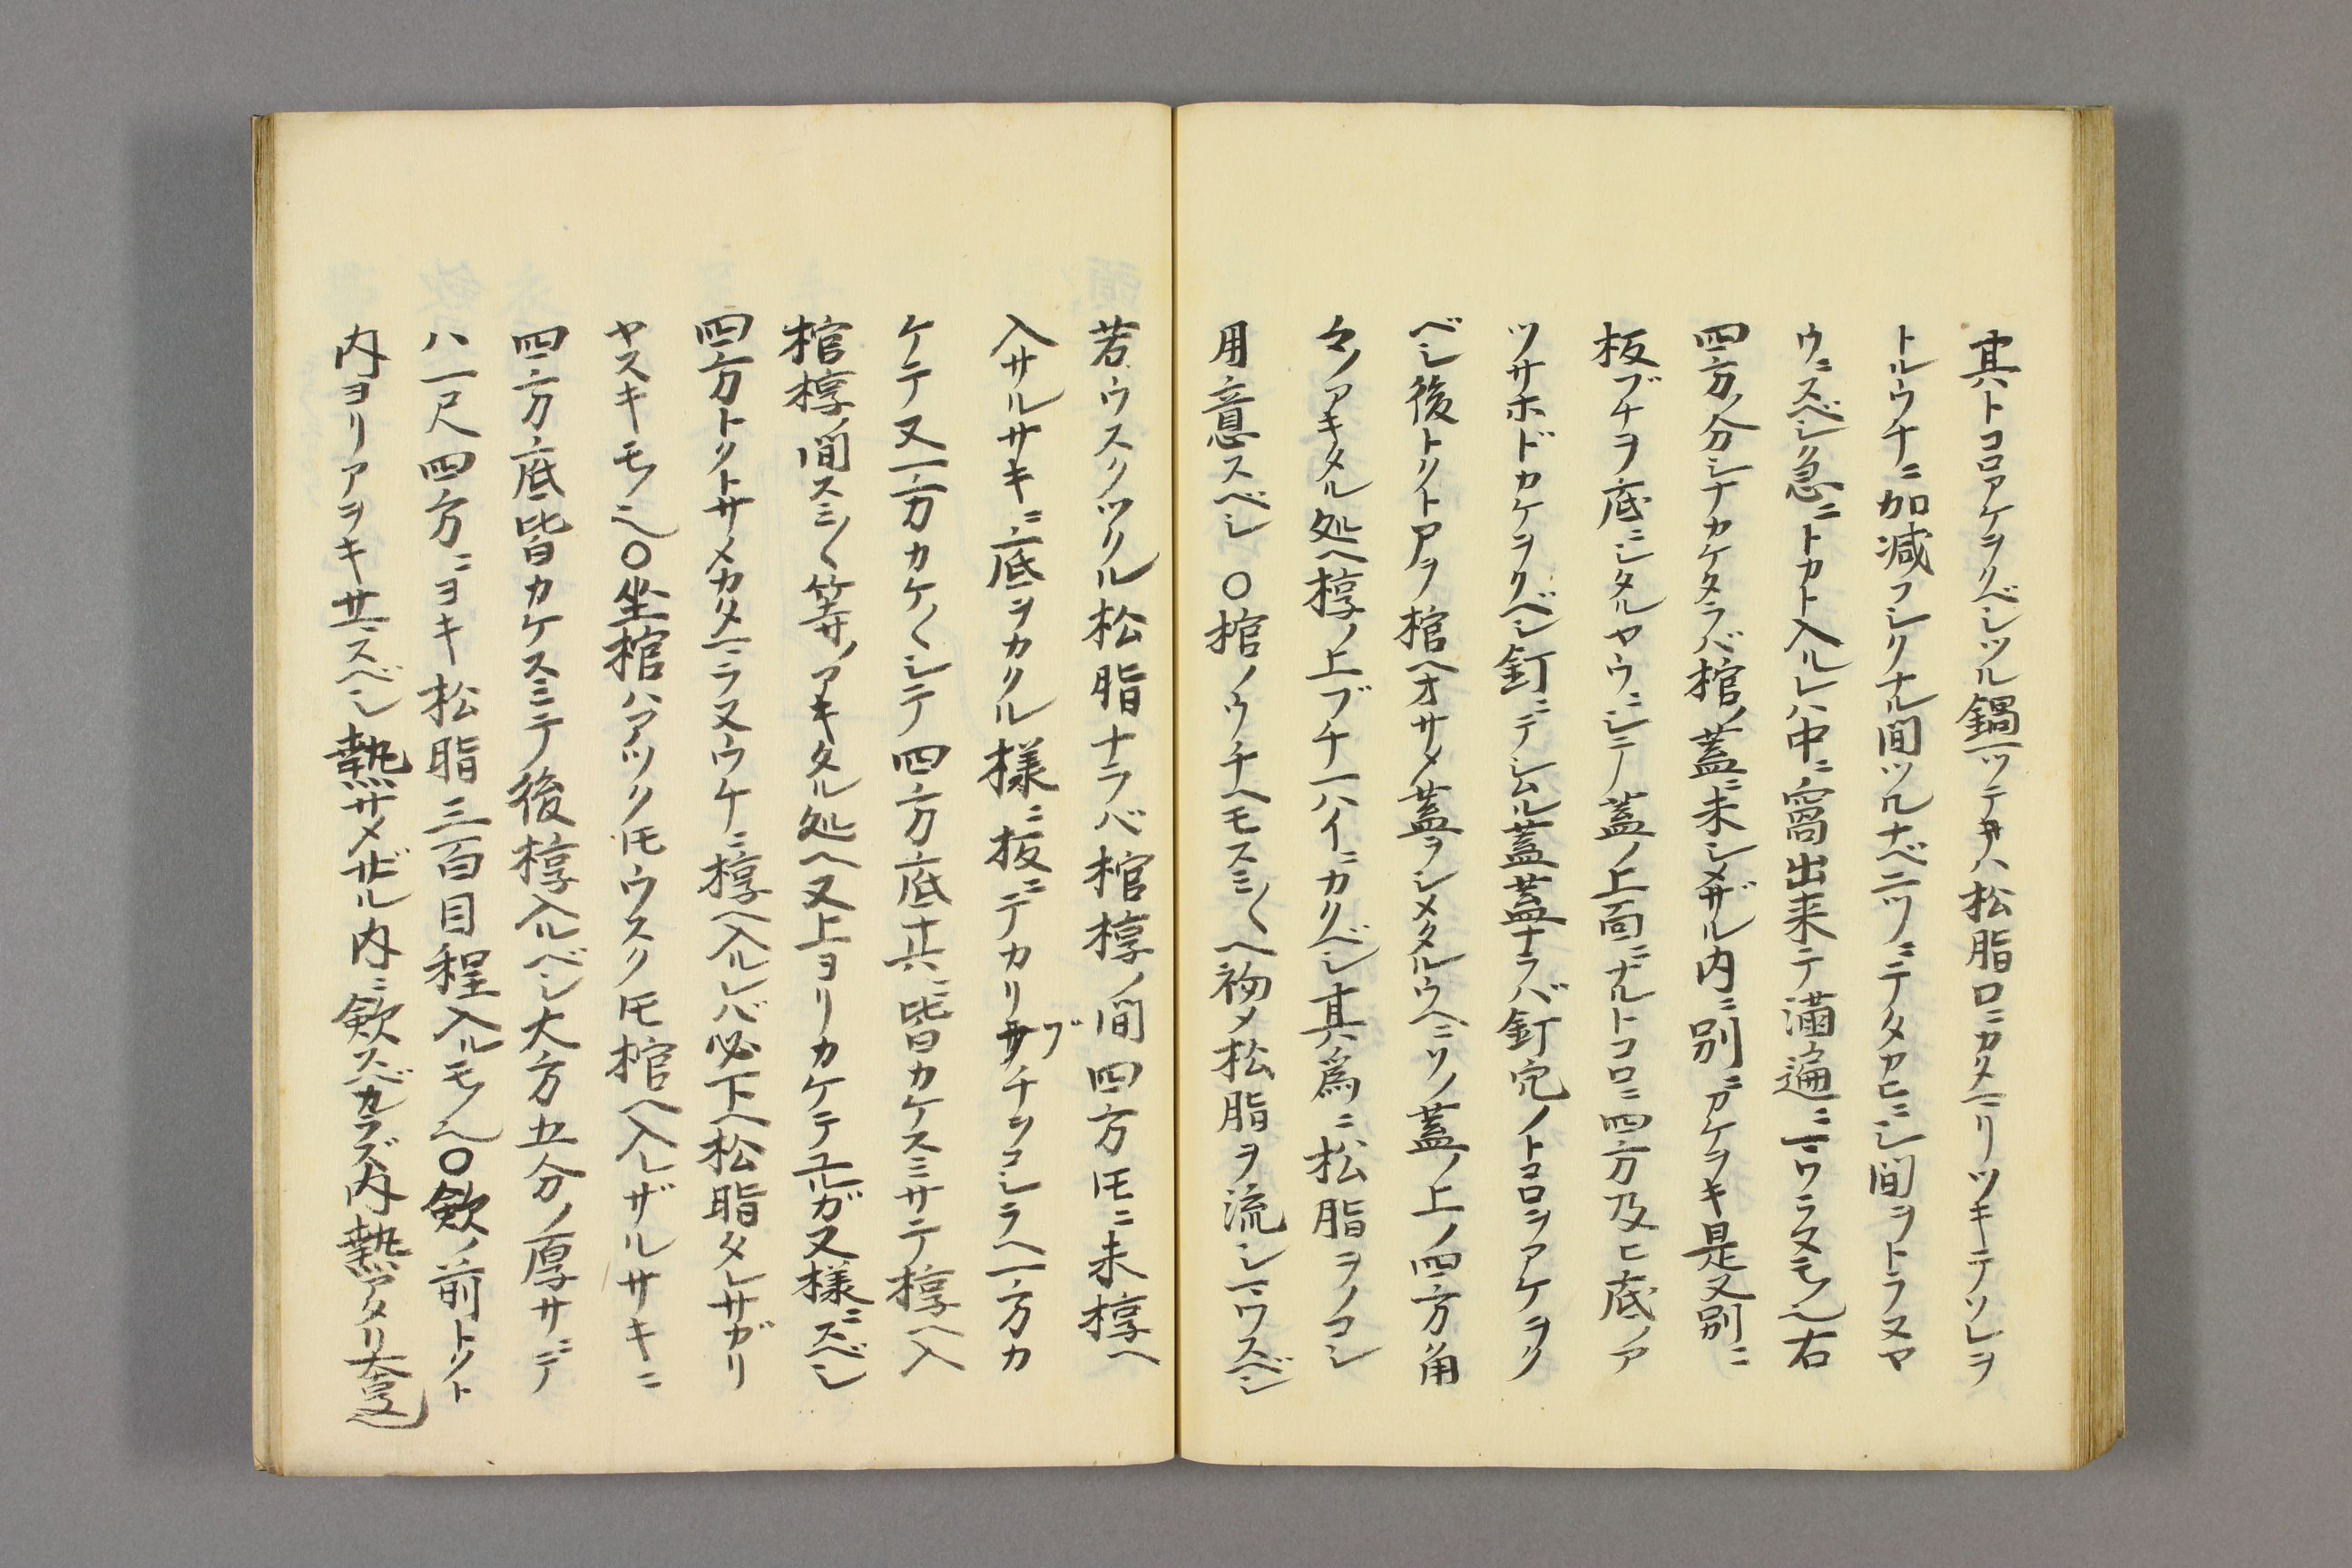 其トコロアケヲクベシツル鍋一ツテヰハ松脂口ニカタマリツキテソレヲ
トルウチニ加減コシクナル間ツルナベ二ツニテタカヒニシ間ヲトラヌヤ
ウニスベシ急ニトカト入ルレハ中ニ窩出来テ満遍ニマワラヌモノ也右
四方ノ分シナカケタラバ棺ノ蓋ニ未シメザル内ニ別ニカケヲキ是又別ニ
板ブチヲ底ニシタルヤウニシテ蓋ノ上面ニナルトコロニ四方及ヒ底ノア
ツサホドカケヲクベシ釘ニテシムル蓋蓋ナラバ釘穴ノトコロヲアケヲク
ベシ後トクトアヲ棺ヘオサメ蓋ヲシメタルウヘニソノ蓋ノ上ノ四方角
々ノアキタル処ヘ椁ノ上ブチ一ハイニカクベシ其爲ニ松脂ヲノコシ
用意スベシ〇棺ノウチヘモスミ〳〵ヘ初メ松脂ヲ流シマワスベシ
若ウスクツクル松脂ナラバ棺椁ノ間四方トモニ未椁ヘ
入サルサキニ底ヲカクル様ニ板ニテカリブチヲコシラヘ一方カ
ケテ又一方カケ〳〵シテ四方底共ニ皆カケスミサテ椁ヘ入
棺椁ノ間スミ〳〵等ノアキタル処ヘ又上ヨリカケテユルガヌ様ニスベシ
四方トクトサメカタマラヌウケニ椁ヘ入ルレバ必下ヘ松脂タレサガリ
ヤスキモノ也〇坐棺ハアツクトモウスクトモ棺ヘ入レザルサキニ
四方底皆カケスミテ後椁入ルベシ大方五分ノ厚サニテ
ハ一尺四方ニヨキ松脂三百目程入ルモノ也〇歛ノ前トクト
内ヨリアヲキサマスベシ熱サメザル内ニ歛スベカラズ内熱アタリ太急也